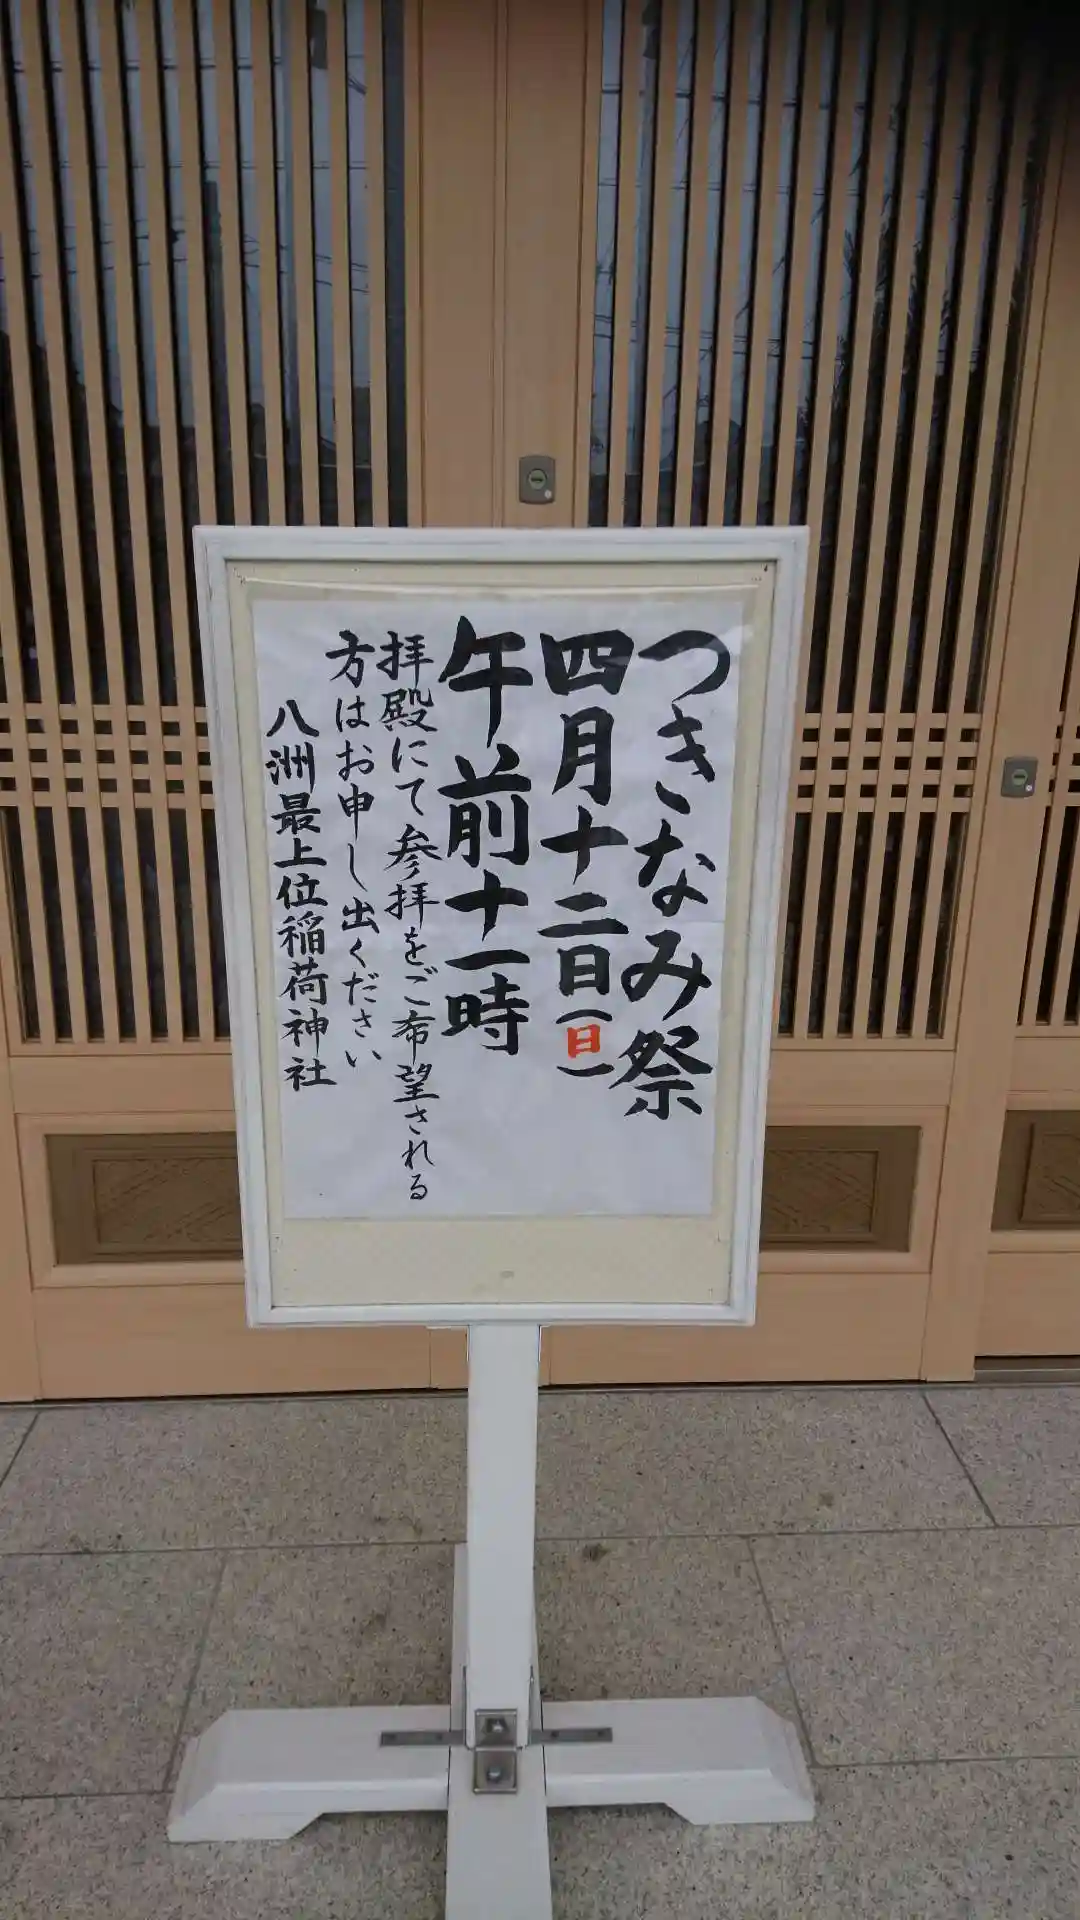 つきなみ祭
四月十二日(日)
午前十一時
拝殿にて参拝をご希望される
方はお申し出ください
八洲最上位稲荷神社